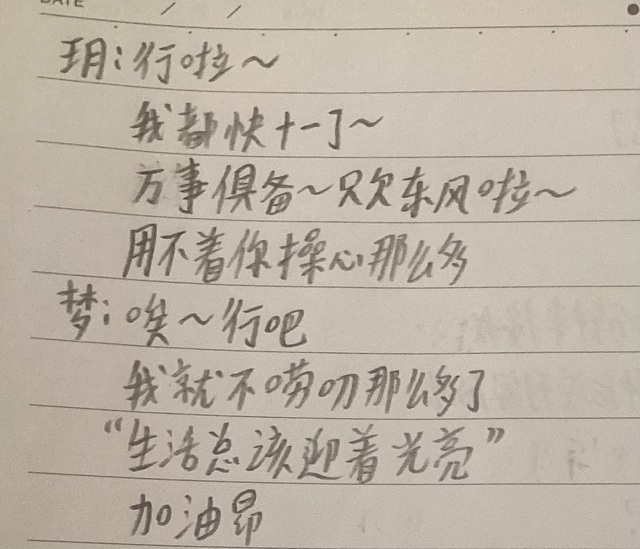 DATE / /
玥：行啦～
我都快十一了～
万事俱备～只欠东风啦～
用不着你操心那么多
梦：唉～行吧
我就不唠叨那么多了
“生活总该迎着光亮”
加油昂